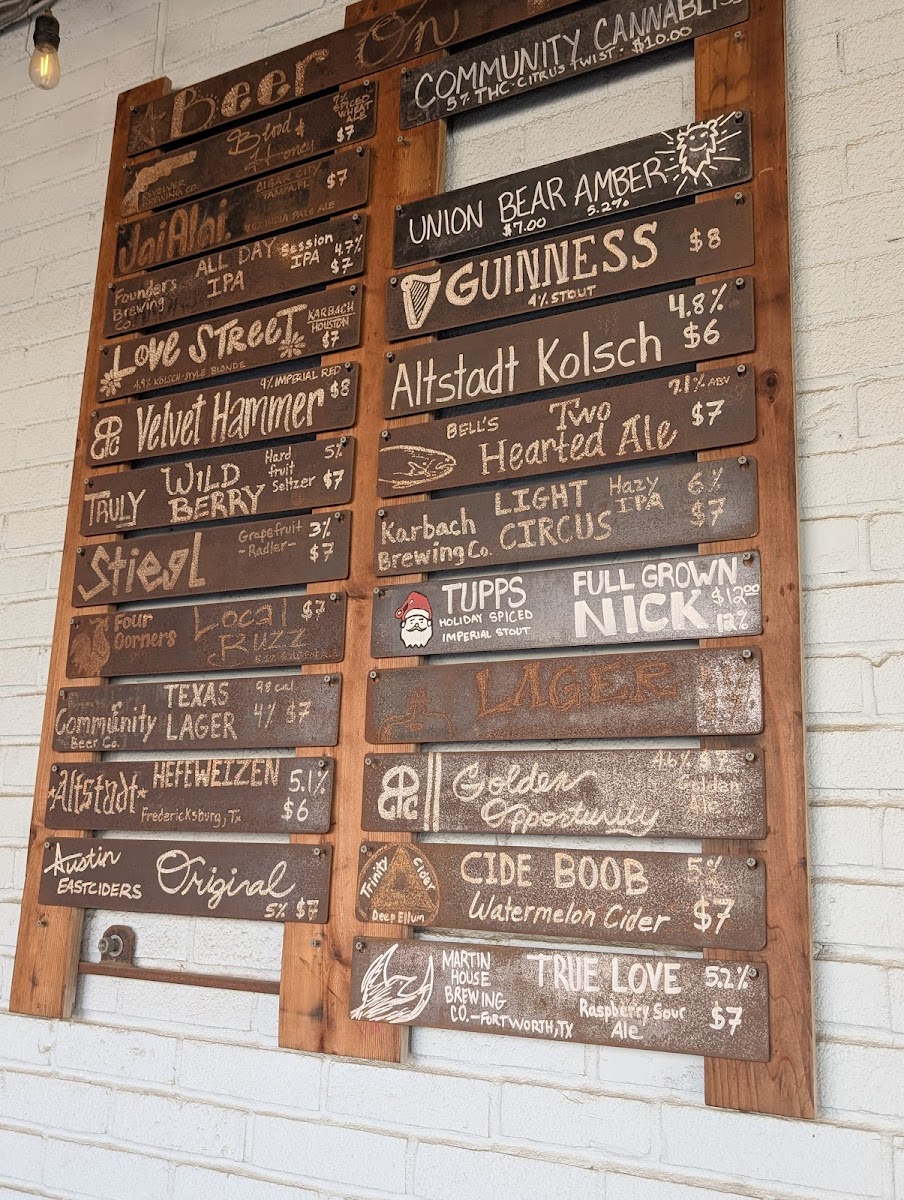 Beer On
Blood & Honey
SPICED
WHEAT
ALE
$7
REVOLVER
BREWING CO.
Jai Alai.
CIGAR CITY
TAMPA, FL
$7
INDIA PALE ALE
Founders
Brewing
Co.
ALL DAY
IPA
Session
IPA
4.7%
$7
Love Street
KARBACH
HOUSTON
$7
4.9% KOLSCH-STYLE BLONDE
9% IMPERIAL RED
Velvet Hammer
$8
TRULY
WILD
BERRY
Hard
fruit
Seltzer
5%
$7
Stiegl
Grapefruit
-Radler-
3%
$7
Four
Corners
Local
Buzz
$7
Community
Beer Co.
TEXAS
LAGER
98 cal
4% $7
Altstadt
HEFEWEIZEN
Fredericksburg, Tx
5.1%
$6
Austin
EASTCIDERS
Original
5% $7
COMMUNITY CANNABLISS
5% THC · CITRUS TWIST · $10.00
UNION BEAR AMBER
$7.00 5.2%
GUINNESS
$8
4% STOUT
Altstadt Kolsch
4.8%
$6
BELL'S
Two
Hearted Ale
7.1% ABV
$7
Karbach
Brewing Co.
LIGHT
CIRCUS
Hazy
IPA
6%
$7
TUPPS
HOLIDAY SPICED
IMPERIAL STOUT
FULL GROWN
NICK
$12.00
12%
LAGER
Golden
Opportunity
4.6% $7
Golden
Ale
Trinity Cider
Deep Ellum
CIDE BOOB
Watermelon Cider
5%
$7
MARTIN
HOUSE
BREWING
CO.-FORT WORTH, TX
TRUE LOVE
Raspberry Sour
Ale
5.2%
$7